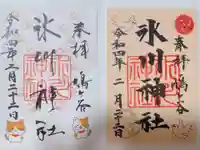 奉拝 鳩ヶ谷
氷川神社
令和四年二月二十二日
奉拝 鳩ヶ谷
氷川神社
令和四年 二月二十二日